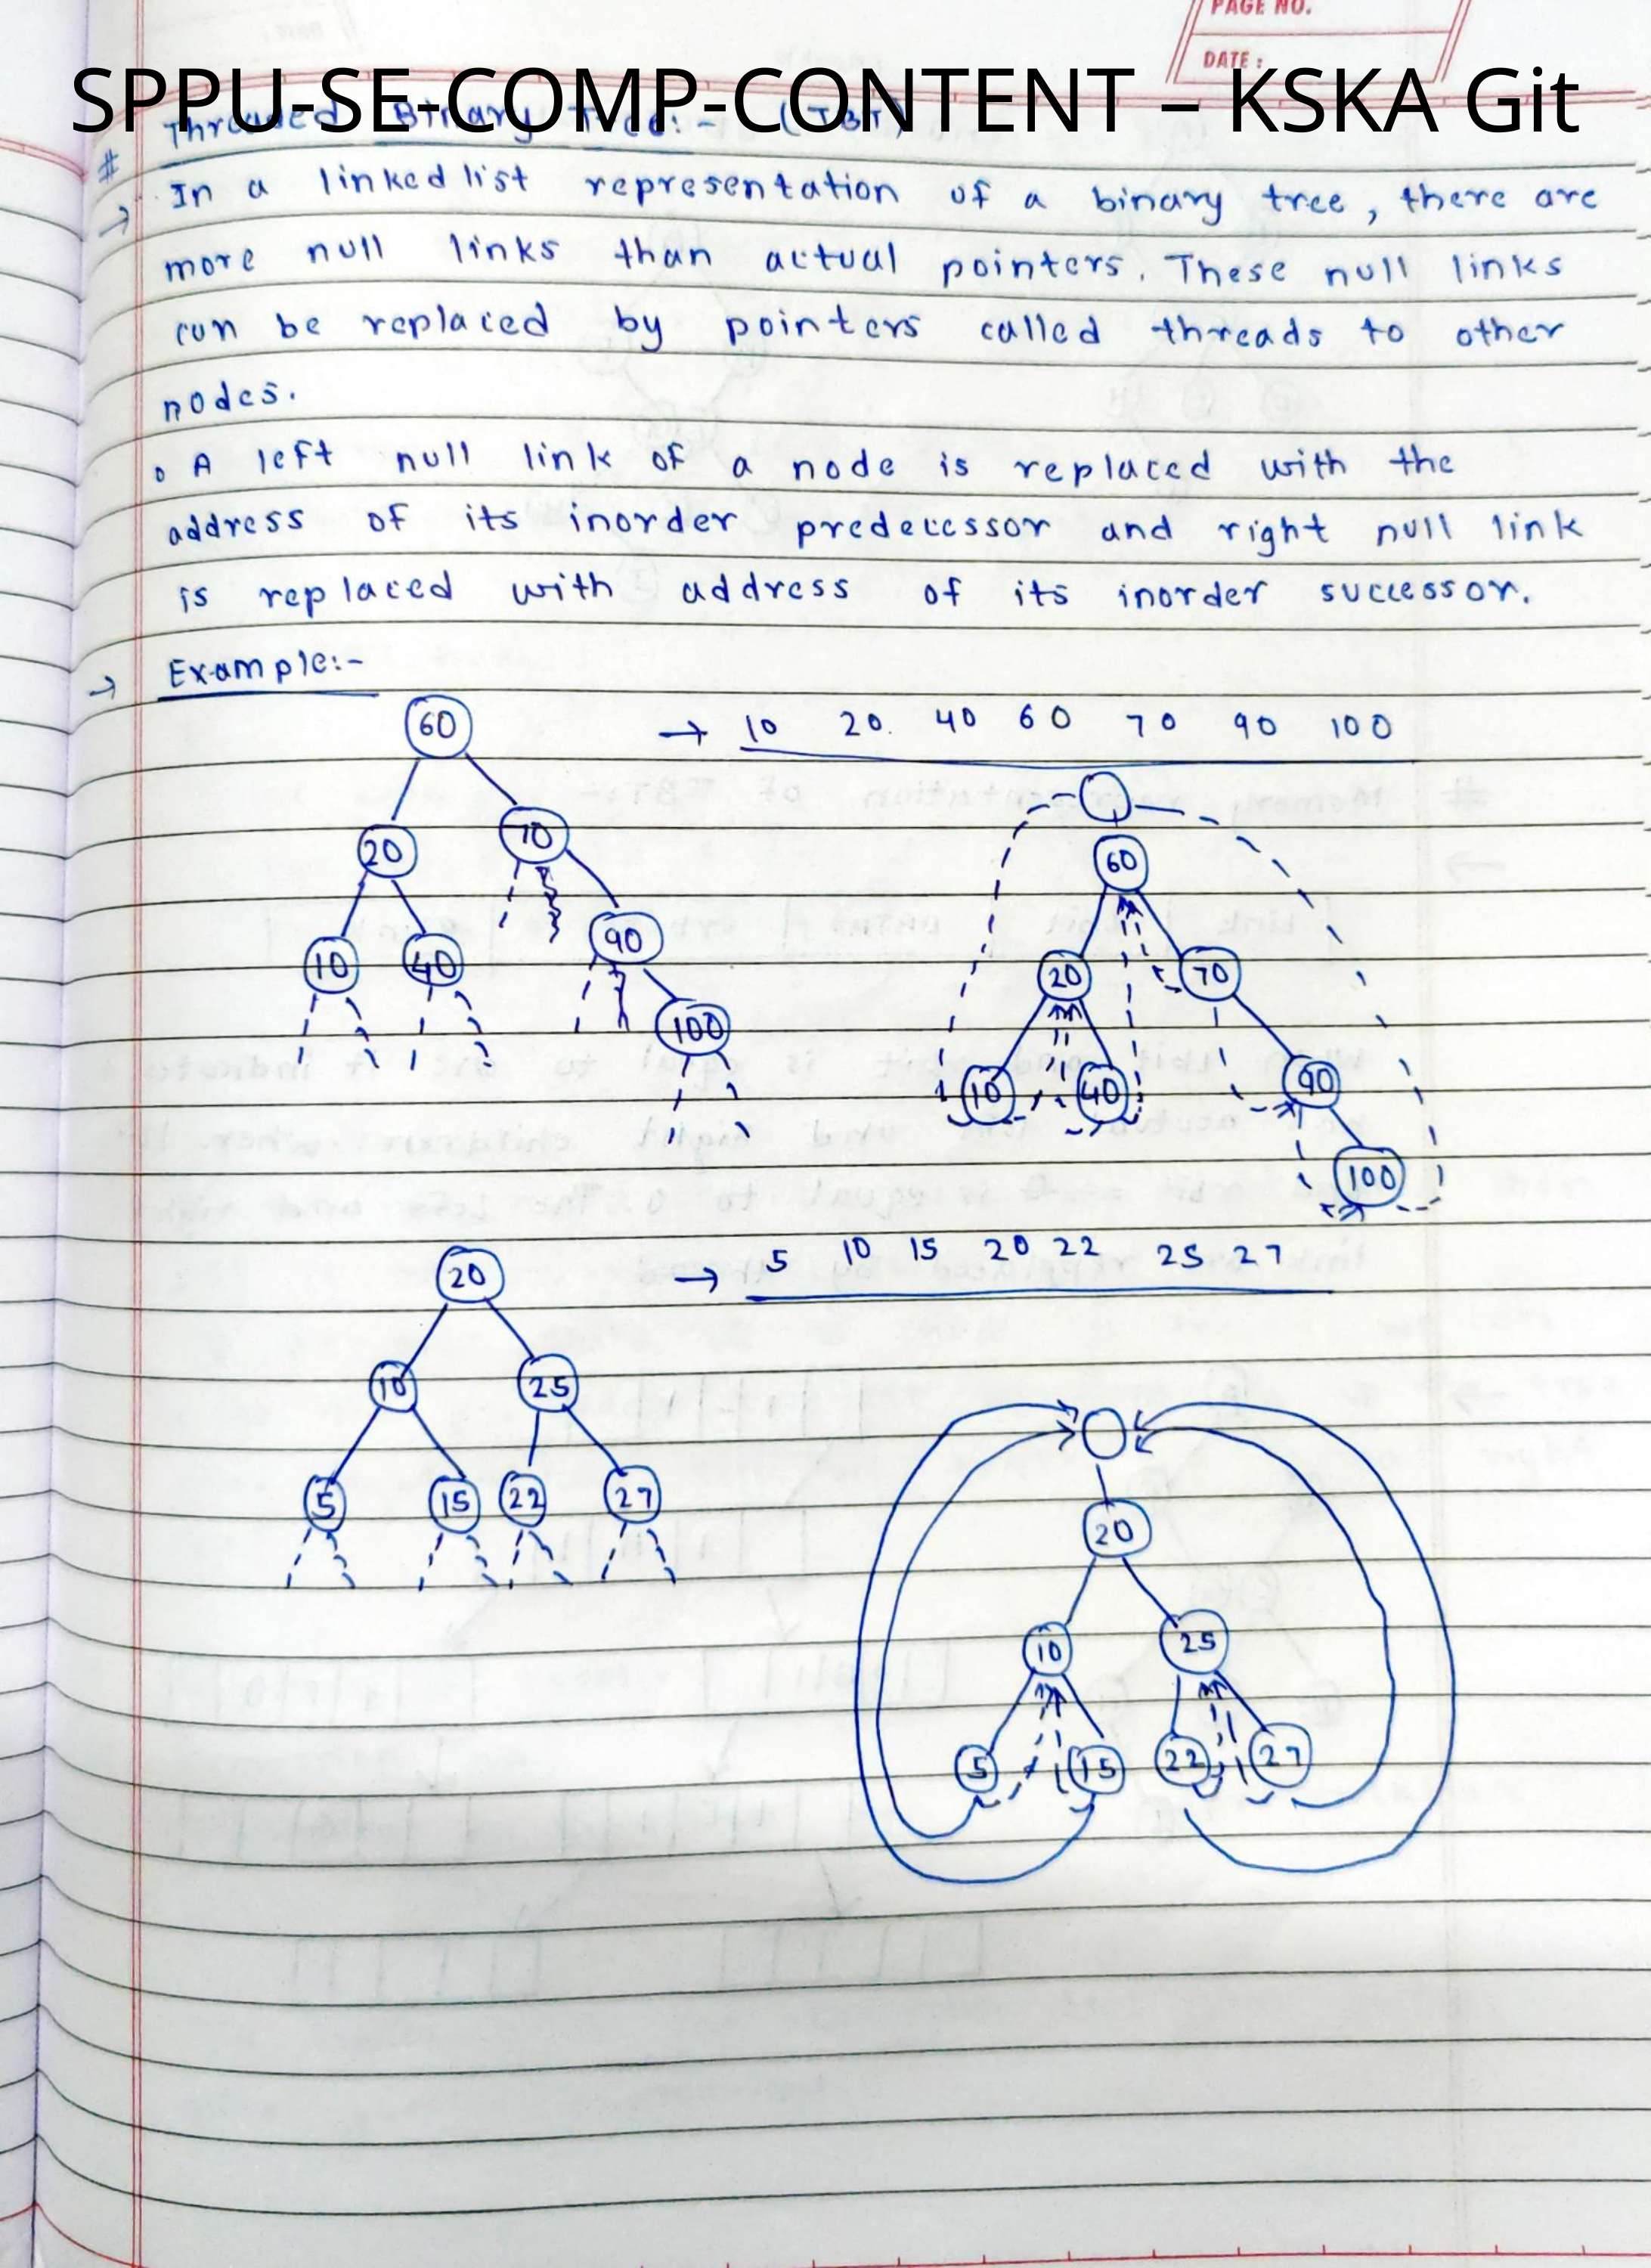 PAGE NO.
DATE :
SPPU-SE-COMP-CONTENT – KSKA Git
# Threaded Binary Tree:- (TBT)
→ In a linked list representation of a binary tree, there are
more null links than actual pointers. These null links
can be replaced by pointers called threads to other
nodes.
o A left null link of a node is replaced with the
address of its inorder predecessor and right null link
is replaced with address of its inorder successor.
→ Example:-
60 → 10 20. 40 60 70 90 100
20 70
10 40 90
100
60
20 70
10 40 90
100
20 → 5 10 15 20 22 25 27
10 25
5 15 22 27
20
10 25
5 15 22 27